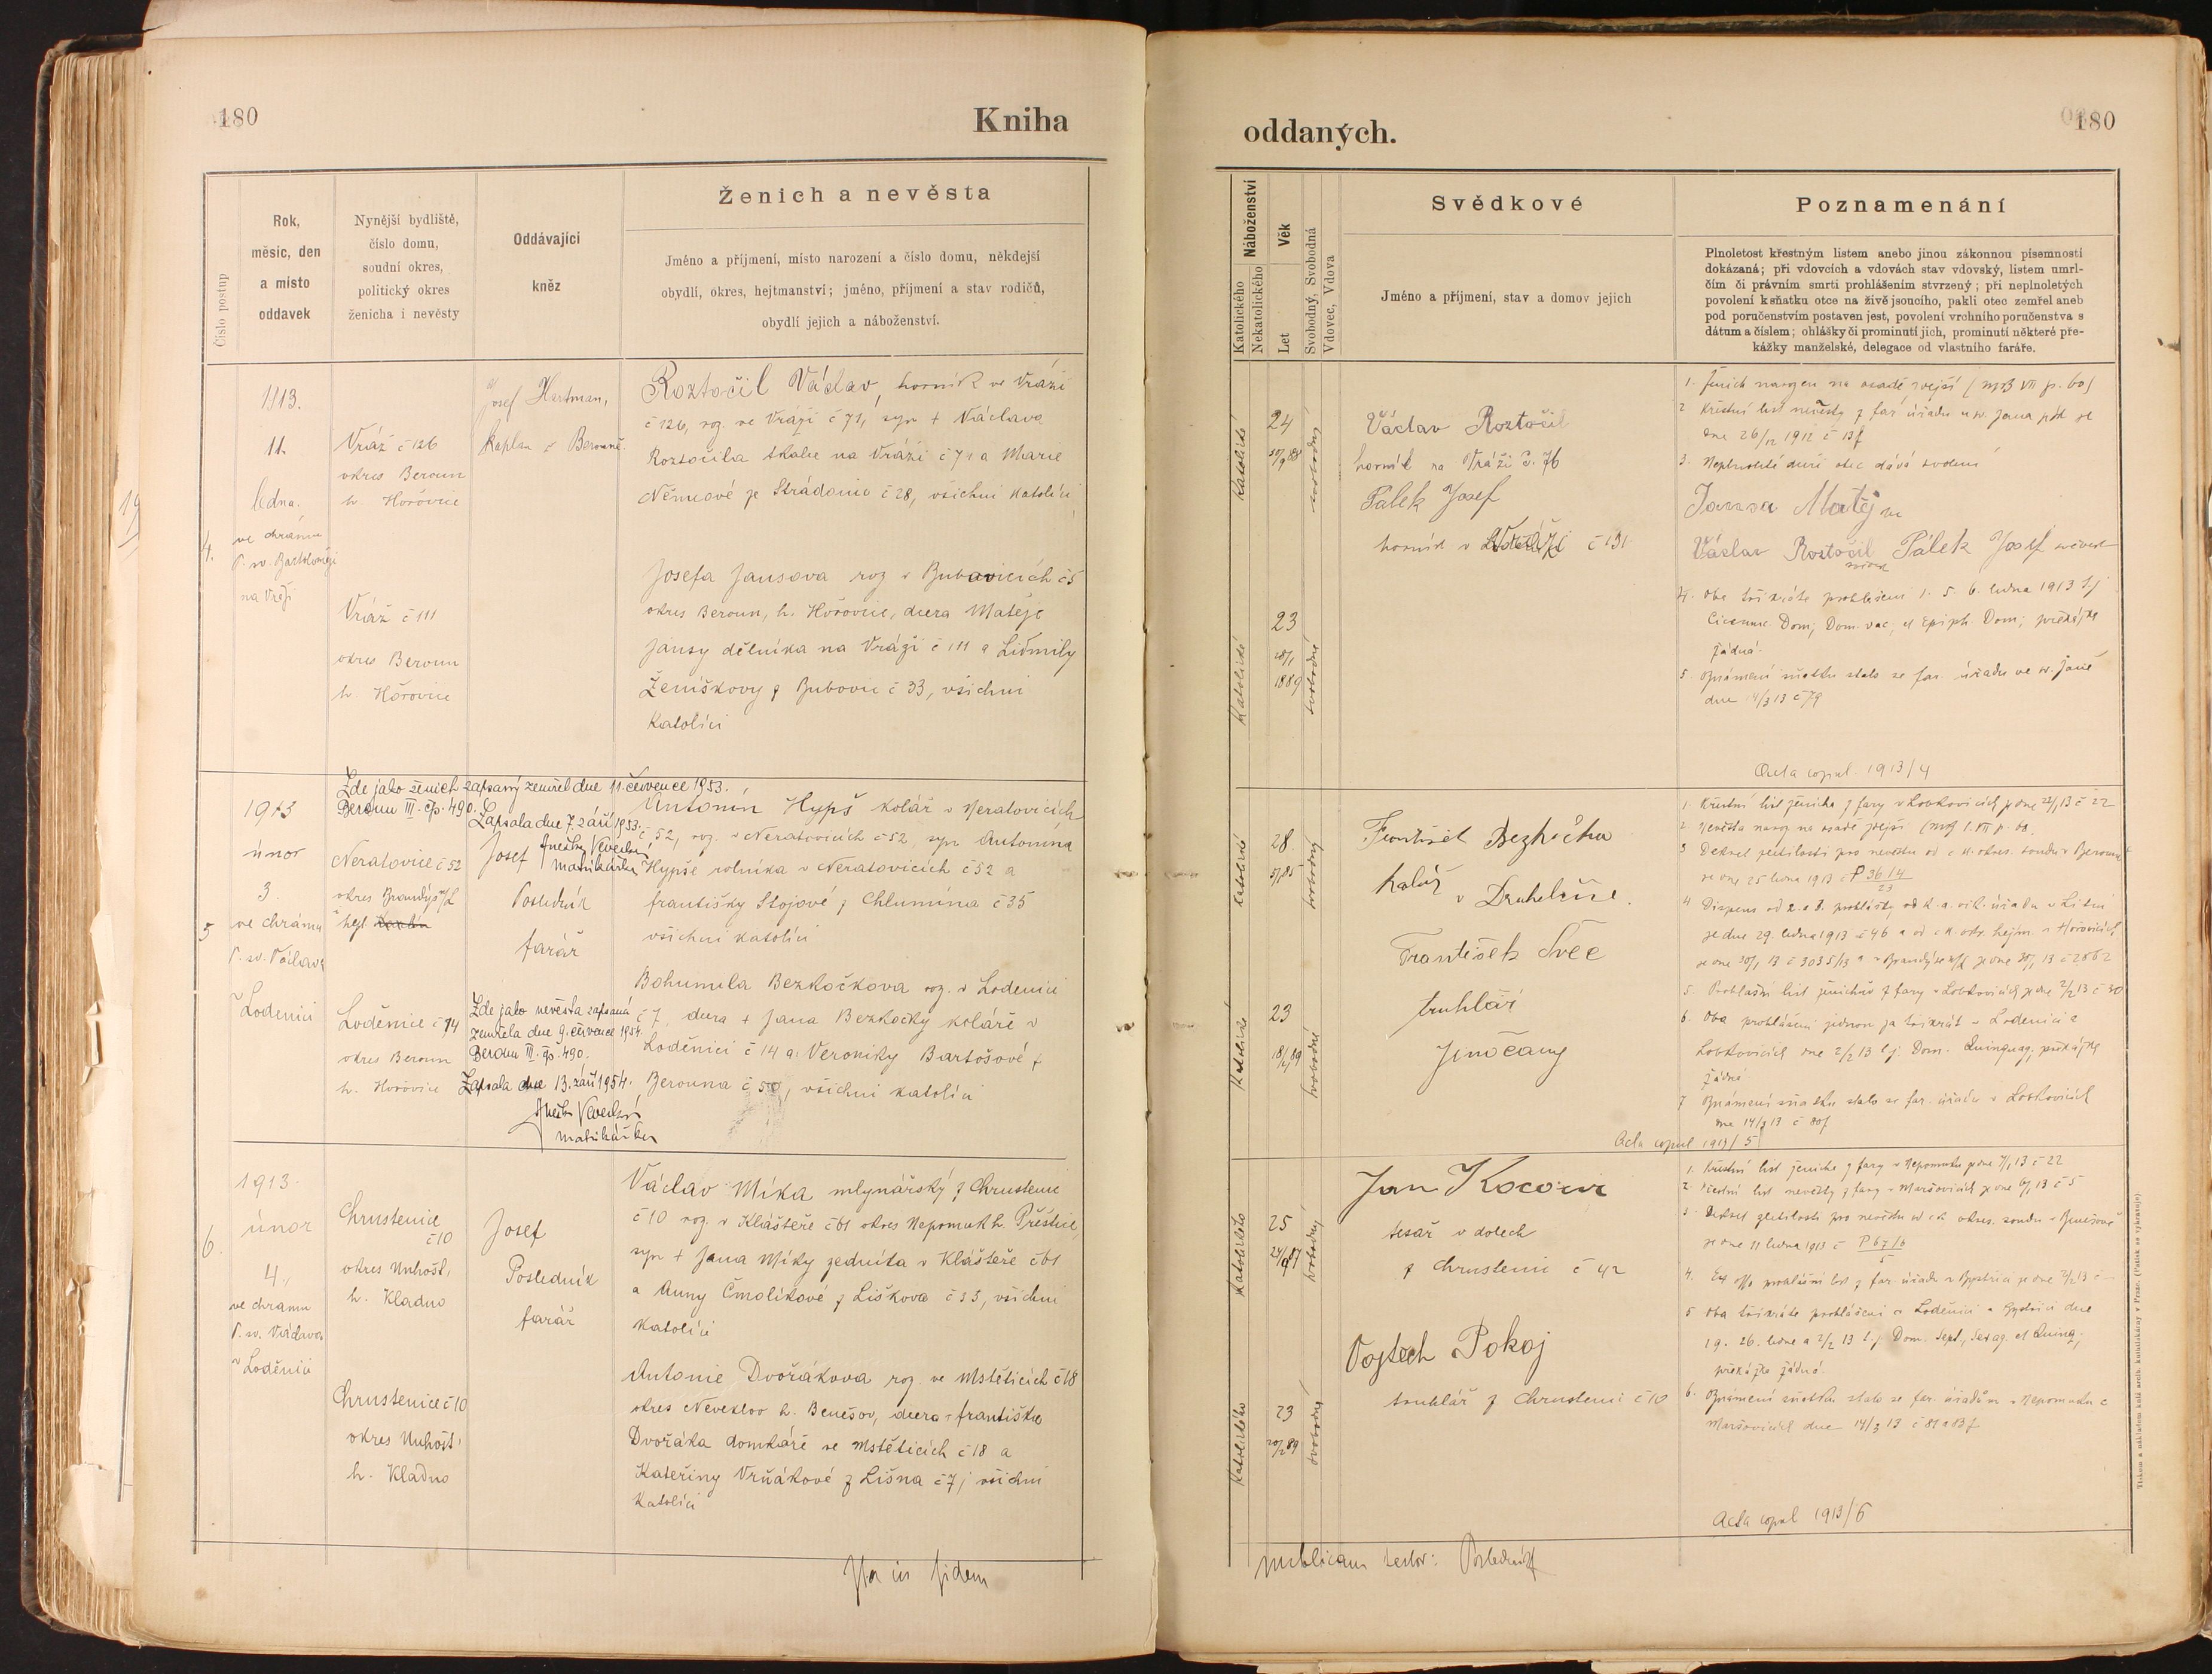 180
Kniha
Číslo postup
Rok,
měsíc, den
a místo
oddavek
Nynější bydliště,
číslo domu,
soudní okres,
politický okres
ženicha i nevěsty
Oddávající
kněz
Ženich a nevěsta
Jméno a příjmení, místo narození a číslo domu, někdejší
obydlí, okres, hejtmanství; jméno, příjmení a stav rodičů,
obydlí jejich a náboženství.
4.
1913.
11.
ledna.
ve chrámu
P. sv. Bartoloměje
na Vráži
Vráž č 126
okres Beroun
h. Hořovice
Vráž č 111
okres Beroun
h. Hořovice
Josef Hartman,
kaplan v Berouně.
Roztočil Václav, horník ve Vráži
č 126, roz. ve Vráži č 71, syn + Václava
Roztočila tkalce na Vráži č 71 a Marie
Němcové ze Strádonic č 28, všichni katolíci
Josefa Jansova roz v Bubovicích č 5
okres Beroun, h. Hořovice, dcera Matěje
Jansy dělníka na Vráži č 111 a Lidmily
Ženíškovy z Bubovic č 33, všichni
katolíci
5
1913
únor
3.
ve chrámu
P. sv. Václava
v Loděnici
Zde jako ženich zapsaný zemřel dne 11. července 1953.
Beroun III. čp. 490. Zapsala dne 7. září 1953.
Anežka
matrikářka
Neratovice č 52
okres Brandýs n/L
hejt
Loděnice č 14
okres Beroun
h. Hořovice
Josef
Posledník
farář
Zde jako nevěsta zapsaná
zemřela dne 9. července 1954.
Beroun III. čp. 490.
Zapsala dne 13. září 1954.
Anežka
matrikářka
Antonín Hypš kolář v Neratovicích
č 52, roz. v Neratovicích č 52, syn Antonína
Hypše rolníka v Neratovicích č 52 a
františky Stojové z Chlumína č 35
všichni katolíci
Bohumila Bezkočkova roz. v Loděnici
č 7, dcera + Jana Bezkočky koláře v
Loděnici č 14 a Veroniky Bartošové z
Berouna č 50, všichni katolíci
6.
1913.
únor
4.
ve chramu
P. sv. Václava
v Loděnici
Chrustenice
č 10
okres Unhošť,
h. Kladno
Chrustenice č 10
okres Unhošť,
h. Kladno
Josef
Posledník
farář
Václav Míka mlynářský z Chrustenic
č 10 roz. v Klášteře č 61 okres Nepomuk h. Přeštice,
syn + Jana Míky zedníka v Klášteře č 61
a Anny Čmolíkové z Liškova č 33, všichni
katolíci
Antonie Dvořákova roz. ve Mstěticích č 18
okres Neveklov h. Benešov, dcera františka
Dvořáka domkáře ve Mstěticích č 18 a
Kateřiny Vrňákové z Lišna č 7, všichni
katolíci
in fidem
oddaných.
180
Katolického
Nekatolického
Náboženství
Věk
Let
Svobodný, Svobodná
Vdovec, Vdova
Svědkové
Jméno a příjmení, stav a domov jejich
Poznamenání
Plnoletost křestným listem anebo jinou zákonnou písemností
dokázaná; při vdovcích a vdovách stav vdovský, listem umrl-
čím či právním smrti prohlášením stvrzený; při neplnoletých
povolení k sňatku otce na živě jsoucího, pakli otec zemřel aneb
pod poručenstvím postaven jest, povolení vrchního poručenstva s
dátum a číslem; ohlášky či prominutí jich, prominutí některé pře-
kážky manželské, delegace od vlastního faráře.
katolické
24
svobodný
Václav Roztočil
horník na Vráži č. 76
Pálek Josef
horník v č 131.
katolické
23
28/1
1889
svobodná
1. Ženich narozen na osadě zdejší
2 Křestní list nevěsty z far úřadu u sv. Jana p/sk ze
dne 26/12 1912 č 137
3. Neplnoleté dceři otec dává svolení
Jansa Matěj
Václav Roztočil Pálek Josef svědek
svědek
4. Oba třikráte prohlášeni 1. 5. 6. ledna 1913 t.j
Circumc. Dom, Dom. vac, et Epiph. Dom; překážka
žádná.
5 Oznámení sňatku stalo se far. úřadu ve sv. Janě
dne 14/3 13 č 79
Acta copul. 1913/4
katolické
28.
svobodný
František Bezkočka
kolář
v Druhelcíse.
František Švec
truhlář
Jinočany
katolické
23
18/12 89
svobodná
1. Křestní list ženicha z fary v Lobkovicích ze dne 23/1 13 č 22
2 Nevěsta naroz na osadě zdejší
3 Dekret zletilosti pro nevěstu od c. k. okres. soudu v Berouně
ze dne 25 ledna 1913 č P 36/4
23
4 Dispens od 2. a 3. prohlášky od k. a. vik. úřadu v Litni
ze dne 29. ledna 1913 č 46 a od c. k. okr. hejtm. v Hořovicích
ze dne 30/1 13 č 3035/13 a v Brandýse n/L ze dne 30/1 13 č 2862
5. Prohlašní list ženichův z fary v Lobkovicích ze dne 2/2 13 č 30
6. Oba prohlášeni jednou za třikrát v Loděnici a
Lobkovicích dne 2/2 13 t.j. Dom. Quinquag, překážka
žádná
7 Oznámení sňatku stalo se far. úřadu v Lobkovicích
dne 14/3 13 č 80
Acta copul 1913/5
Katolického
25
svobodný
Jan Kocour
tesař v dolech
z Chrustenic č 42
Vojtěch Pokoj
truhlář z Chrustenic č 10
Katolického
23
20/2 89
svobodná
1. Křestní list ženicha z fary v Nepomuku ze dne 7/1 13 č 22
2 křestní list nevěsty z fary v Maršovicích ze dne 6/1 13 č 5
3. Dekret zletilosti pro nevěstu od c. k. okres. soudu v Benešově
ze dne 11 ledna 1913 č P 67/6
5
5 Oba třikráte prohlášeni v Loděnici a dne
19. 26. ledna a 2/2 13 t.j. Dom. Sept, Sexag. et Quinq,
překážka žádná.
6. Oznámení sňatku stalo se far. úřadům v Nepomuku a
Maršovicích dne 14/3 13 č 81 a 83
Acta copul 1913/6
publicam testor: Posledník